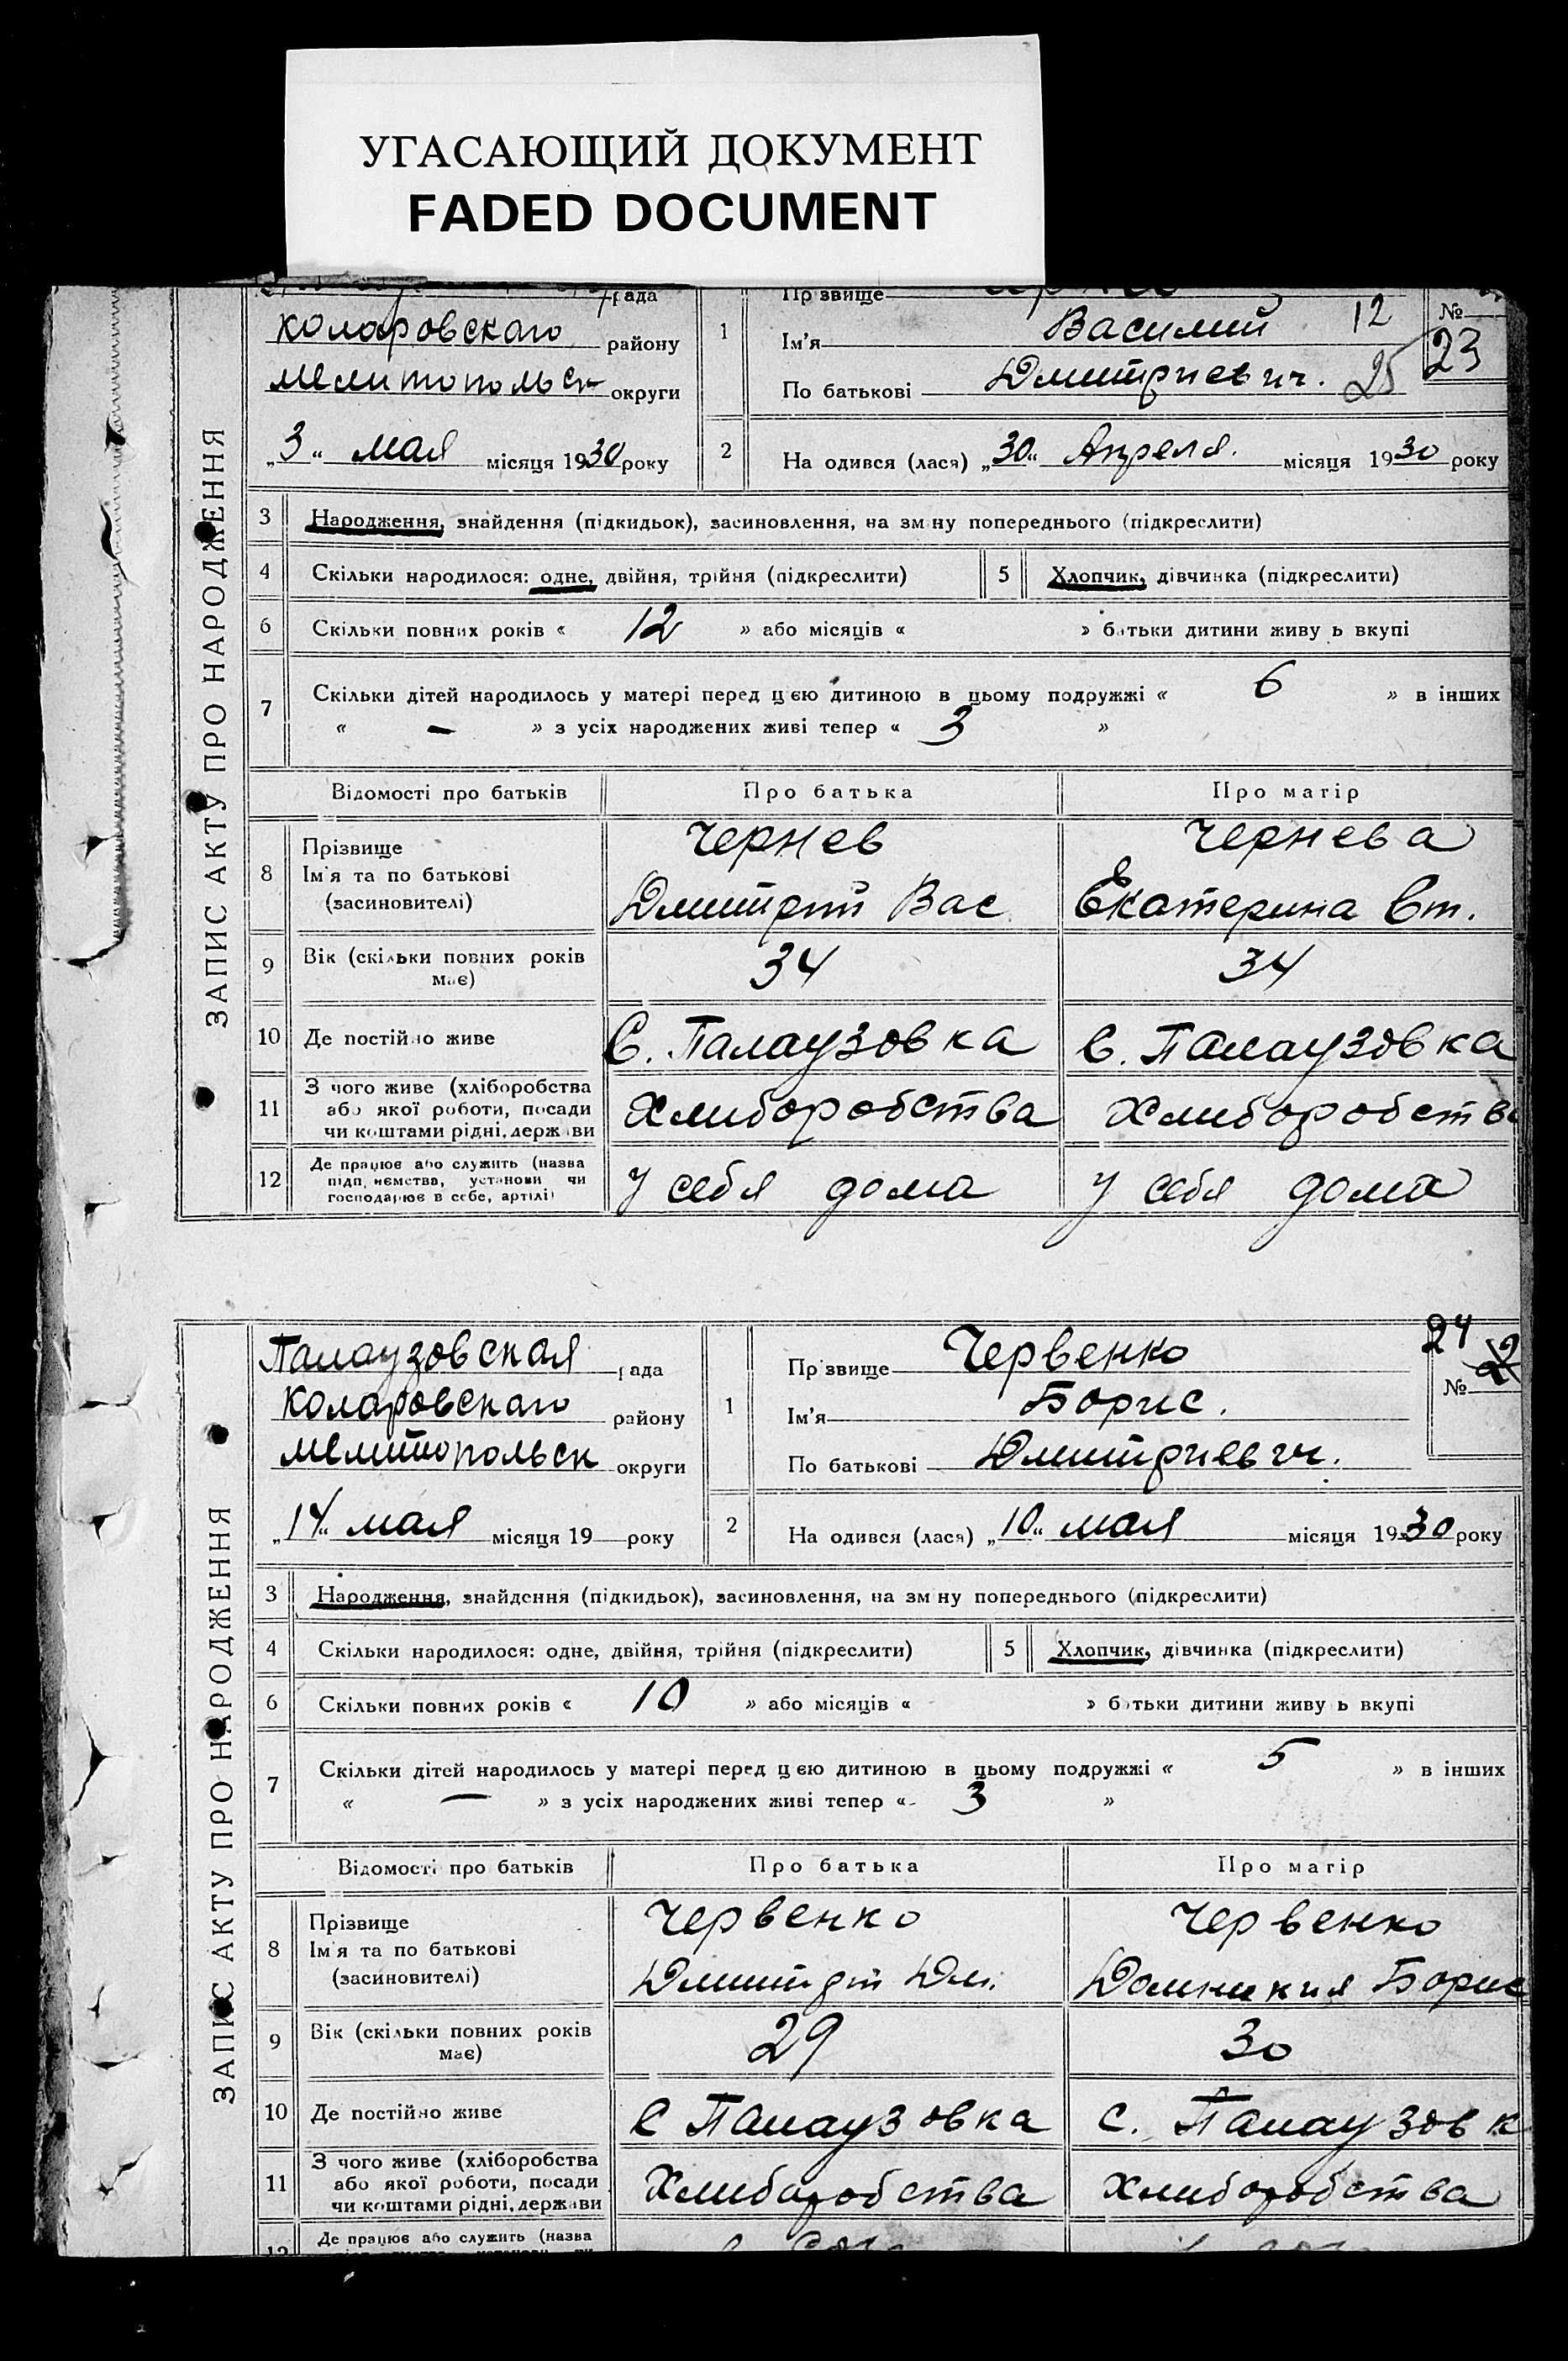 УГАСАЮЩИЙ ДОКУМЕНТ
FADED DOCUMENT
рада
Пр звище
№
коларовскаго району
1
Ім'я Василий 12
23
мелитопольск округи
По батькові Дмитриевич. 25
„3“ мая місяця 1930 року
2
На одився (лася) „30“ Апреля. місяця 1930 року
ЗАПИС АКТУ ПРО НАРОДЖЕННЯ
3 Народження, знайдення (підкидьок), засиновлення, на зм ну попереднього (підкреслити)
4 Скільки народилося: одне, двійня, трійня (підкреслити) 5 Хлопчик, дівчинка (підкреслити)
6 Скільки повних років « 12 » або місяців « » батьки дитини живу ь вкупі
7 Скільки дітей народилось у матері перед цією дитиною в цьому подружжі « 6 » в інших
« — » з усіх народжених живі тепер « 3 »
Відомості про батьків Про батька Про матір
8 Прізвище
Ім'я та по батькові
(засиновителі)
Чернев
Дмитрий Вас
Чернева
Екатерина Ст.
9 Вік (скільки повних років
має)
34
34
10 Де постійно живе С. Палаузовка С. Палаузовка
11 З чого живе (хліборобства
або якої роботи, посади
чи коштами рідні, держави
Хлиборобства Хлиборобства
12 Де працює або служить (назва
підп иємства, установи чи
господарює в себе, артілі)
У себя дома У себя дома
Палаузовская рада
Пр звище Червенко
24
22
№
коларовскаго району
1
Ім'я Борис.
мелитопольск округи
По батькові Дмитриевич.
„14“ мая місяця 19 року
2
На одився (лася) „10“ мая місяця 1930 року
ЗАПИС АКТУ ПРО НАРОДЖЕННЯ
3 Народження, знайдення (підкидьок), засиновлення, на зм ну попереднього (підкреслити)
4 Скільки народилося: одне, двійня, трійня (підкреслити) 5 Хлопчик, дівчинка (підкреслити)
6 Скільки повних років « 10 » або місяців « » батьки дитини живу ь вкупі
7 Скільки дітей народилось у матері перед цією дитиною в цьому подружжі « 5 » в інших
« — » з усіх народжених живі тепер « 3 »
Відомості про батьків Про батька Про матір
8 Прізвище
Ім'я та по батькові
(засиновителі)
Червенко
Дмитрий Дм.
Червенко
Домникия Борис
9 Вік (скільки повних років
має)
29
30
10 Де постійно живе С Палаузовка С. Палаузовк
11 З чого живе (хліборобства
або якої роботи, посади
чи коштами рідні, держави
Хлиборобства Хлиборобства
12 Де працює або служить (назва